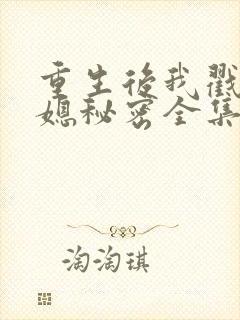 重生后我戳
媳秘密全集
淘淘琪